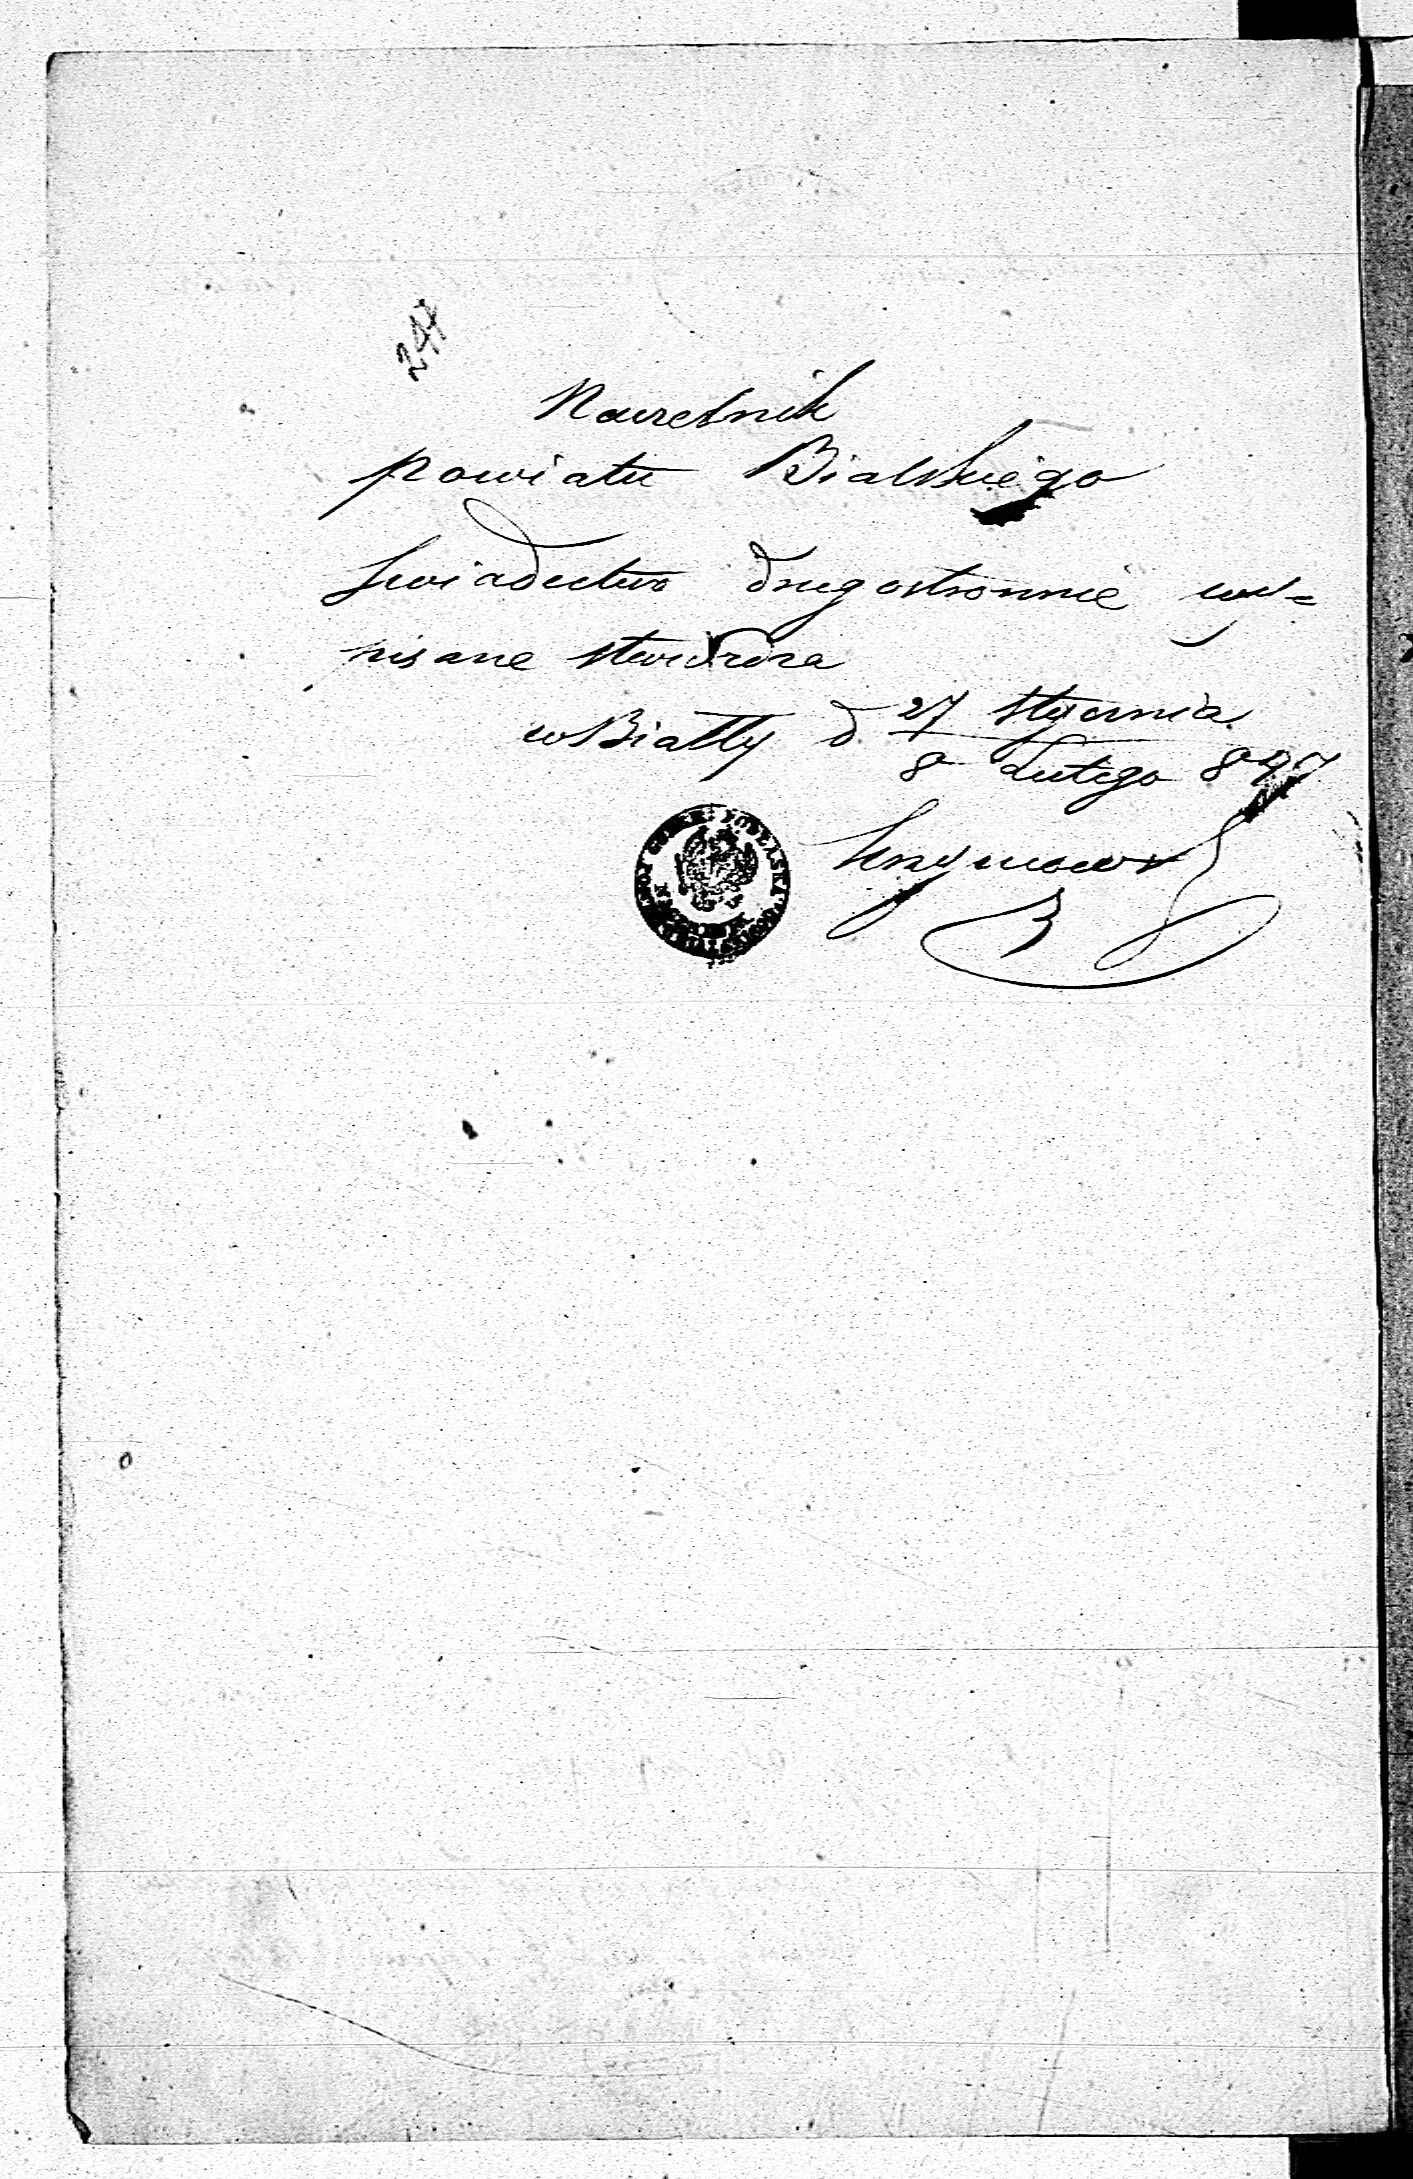 247
Naczelnik
powiatu Bialskiego
Swiadectwo drugostronnie wy=
pisane stwierdza
w Białły d 27 Stycznia
8 Lutego 847